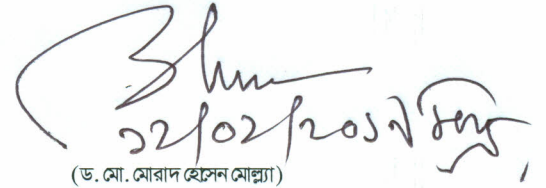 ১২/০২/২০১৭ খ্রিঃ
(ড. মো. মোরাদ হোসেন মোল্ল্যা)